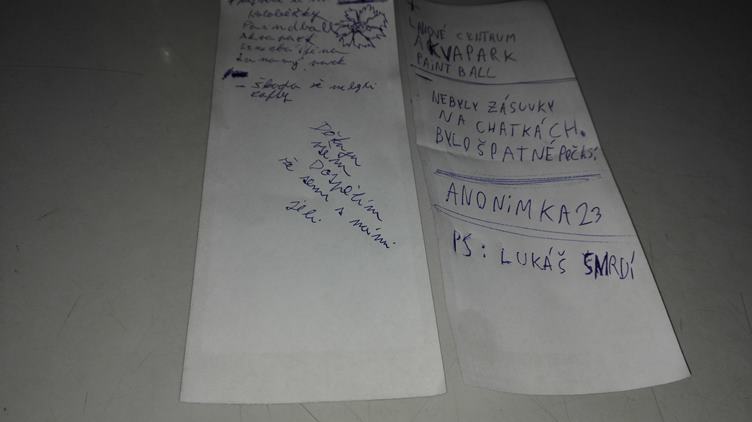 Koloběžky
Paindball
Akvapark
park
- Škoda že nebyli
Děkuju
všem
Dospělím
že semi s námi
jeli.
LANOVÉ CENTRUM
AKVAPARK
PAINT BALL
NEBYLY ZÁSUVKY
NA CHATKÁCH.
BYLO ŠPATNÉ POČASÍ
ANONIMKA23
PS: LUKÁŠ SMRDÍ